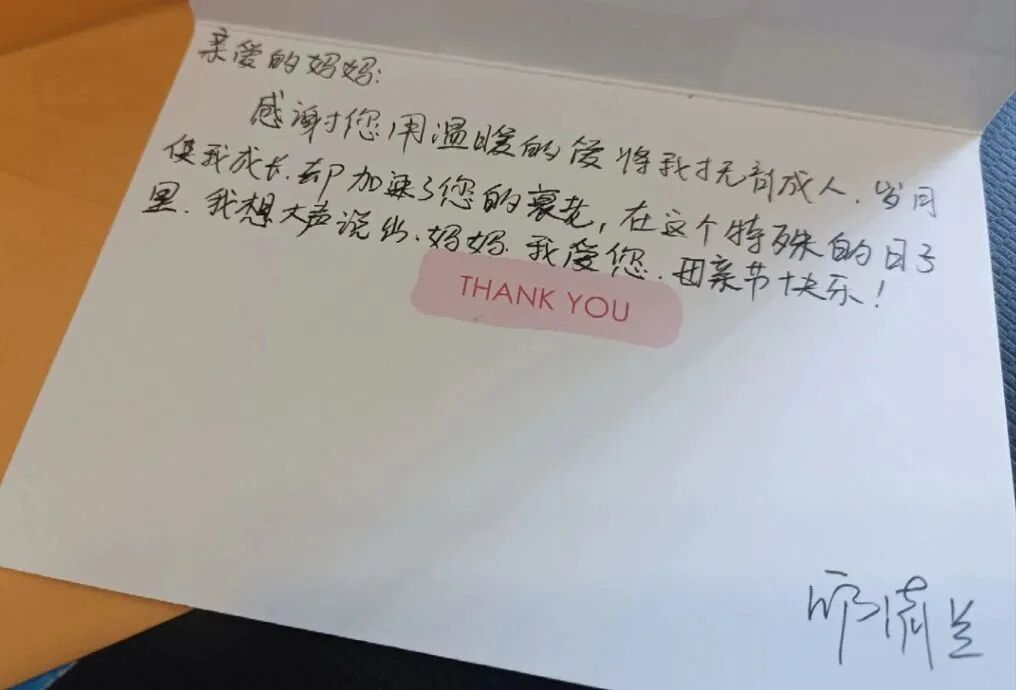 亲爱的妈妈:
感谢您用温暖的爱将我抚育成人.岁月
使我成长.却加速了您的衰老,在这个特殊的日子
里.我想大声说出.妈妈.我爱您.母亲节快乐!
THANK YOU